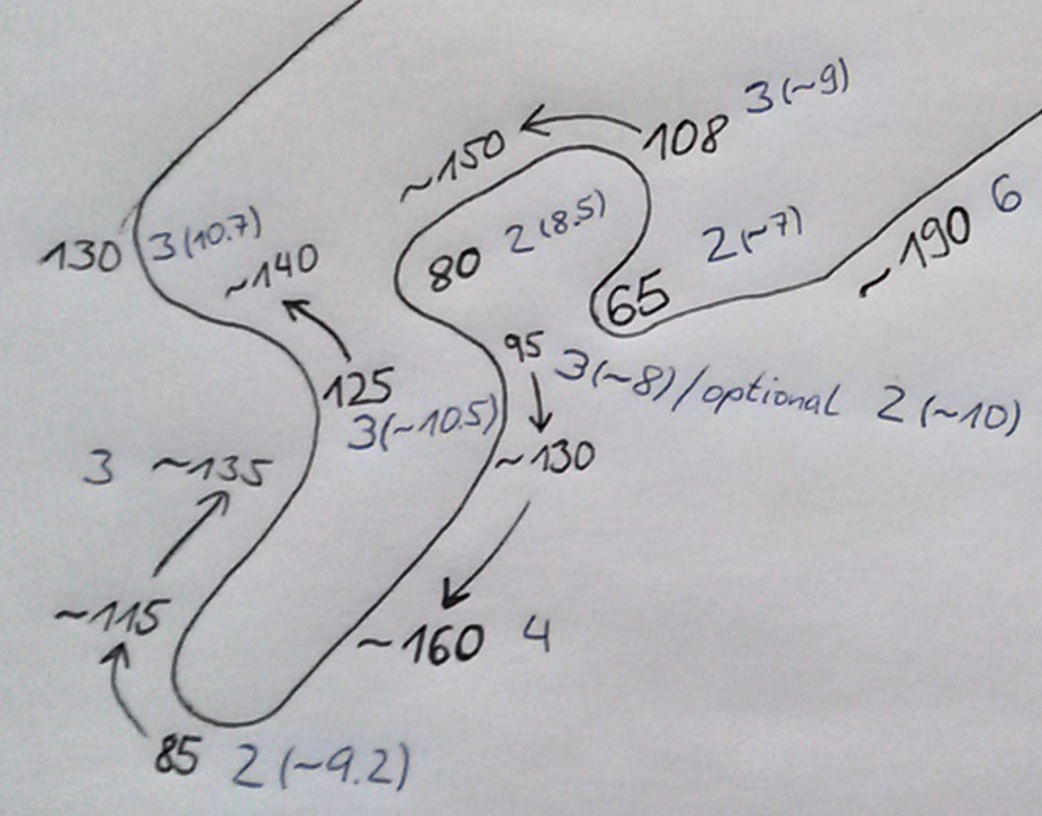 108 3(~9)
~150
~190 6
2(~7)
80 2(8.5)
65
130 3(10.7)
~140
95 3(~8)/optional 2(~10)
125
3(~10.5)
~130
3 ~135
~115
~160 4
85 2(~9.2)